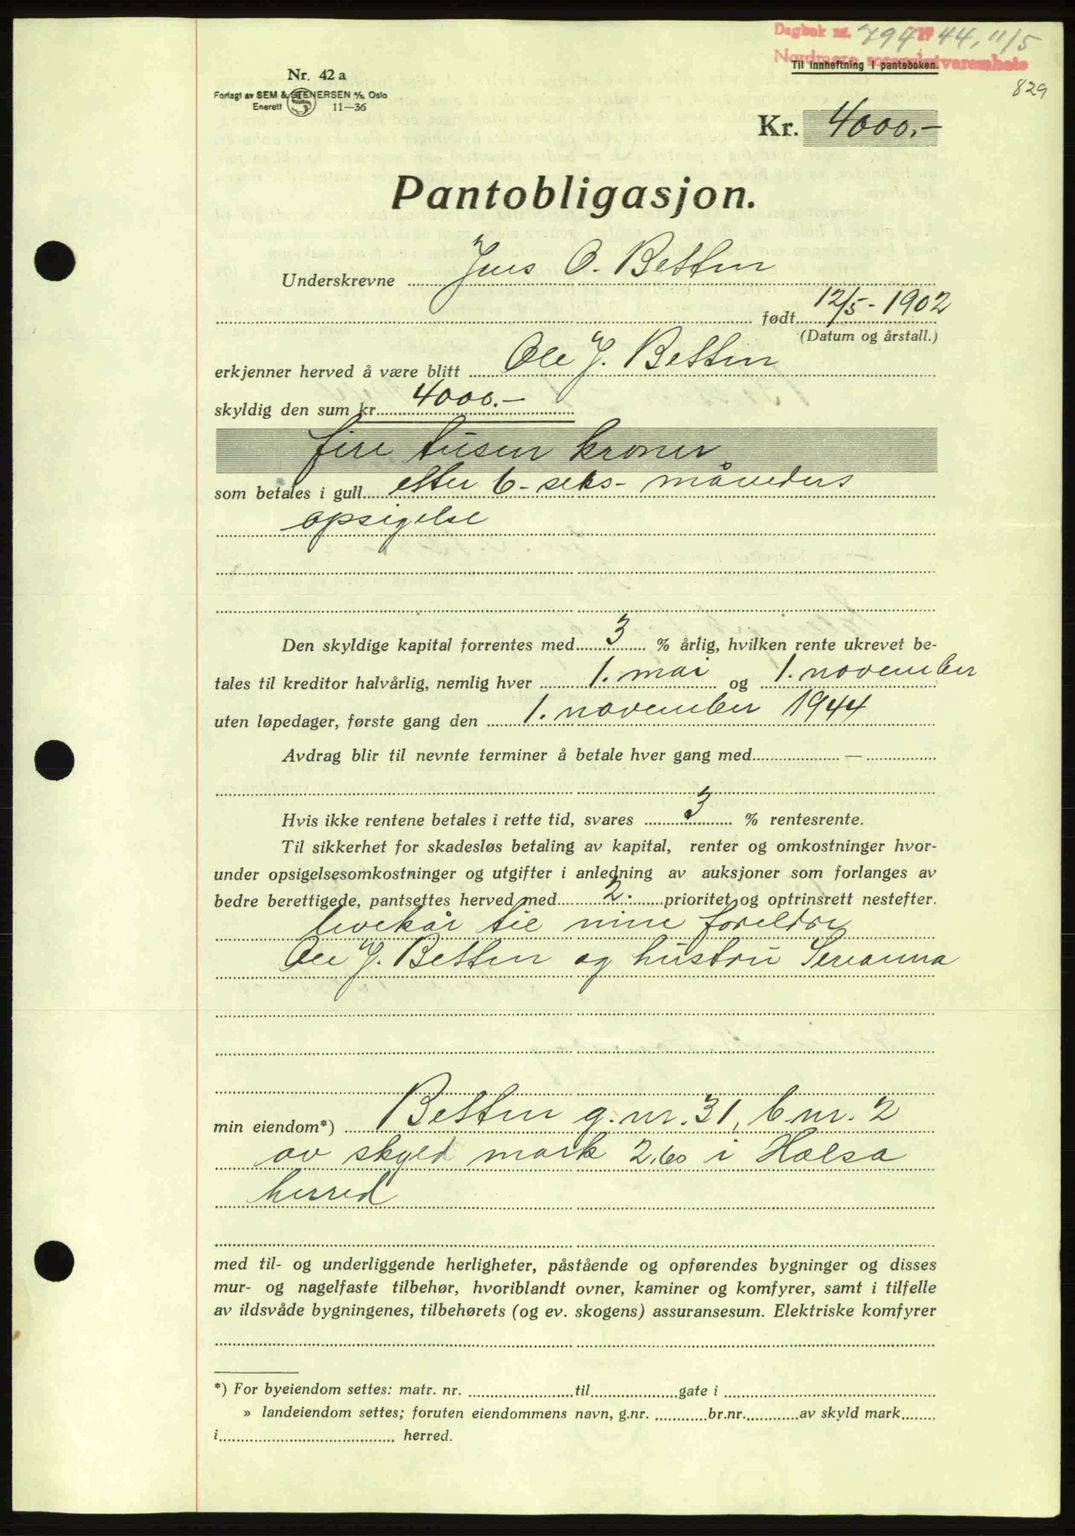 Dagbok nr. 794 1944, 11/5
Nordmøre sorenskriverembete
Til innheftning i panteboken.
829
Nr. 42 a
Forlagt av SEM & STENERSEN A/S, Oslo
Enerett 11—36
Kr. 4000,-
Pantobligasjon.
Underskrevne Jens O. Betten
født 12/5-1902
(Datum og årstall.)
erkjenner herved å være blitt Ole J. Betten
skyldig den sum kr. 4000.-
fire tusen kroner
som betales i gull etter 6-seks- måneders
opsigelse
Den skyldige kapital forrentes med 3 % årlig, hvilken rente ukrevet be-
tales til kreditor halvårlig, nemlig hver 1. mai og 1. november
uten løpedager, første gang den 1. november 1944
Avdrag blir til nevnte terminer å betale hver gang med —
Hvis ikke rentene betales i rette tid, svares 3 % rentesrente.
Til sikkerhet for skadesløs betaling av kapital, renter og omkostninger hvor-
under opsigelsesomkostninger og utgifter i anledning av auksjoner som forlanges av
bedre berettigede, pantsettes herved med 2. prioritet og optrinsrett nestefter.
livekår til mine foreldre
Ole J. Betten og hustru Serianna
min eiendom*) Betten g.nr. 31, b.nr. 2
av skyld mark 2,60 i Halsa
herred
med til- og underliggende herligheter, påstående og opførendes bygninger og disses
mur- og nagelfaste tilbehør, hvoriblandt ovner, kaminer og komfyrer, samt i tilfelle
av ildsvåde bygningenes, tilbehørets (og ev. skogens) assuransesum. Elektriske komfyrer
*) For byeiendom settes: matr. nr. til gate i
» landeiendom settes; foruten eiendommens navn, g.nr. br.nr. av skyld mark
i herred.